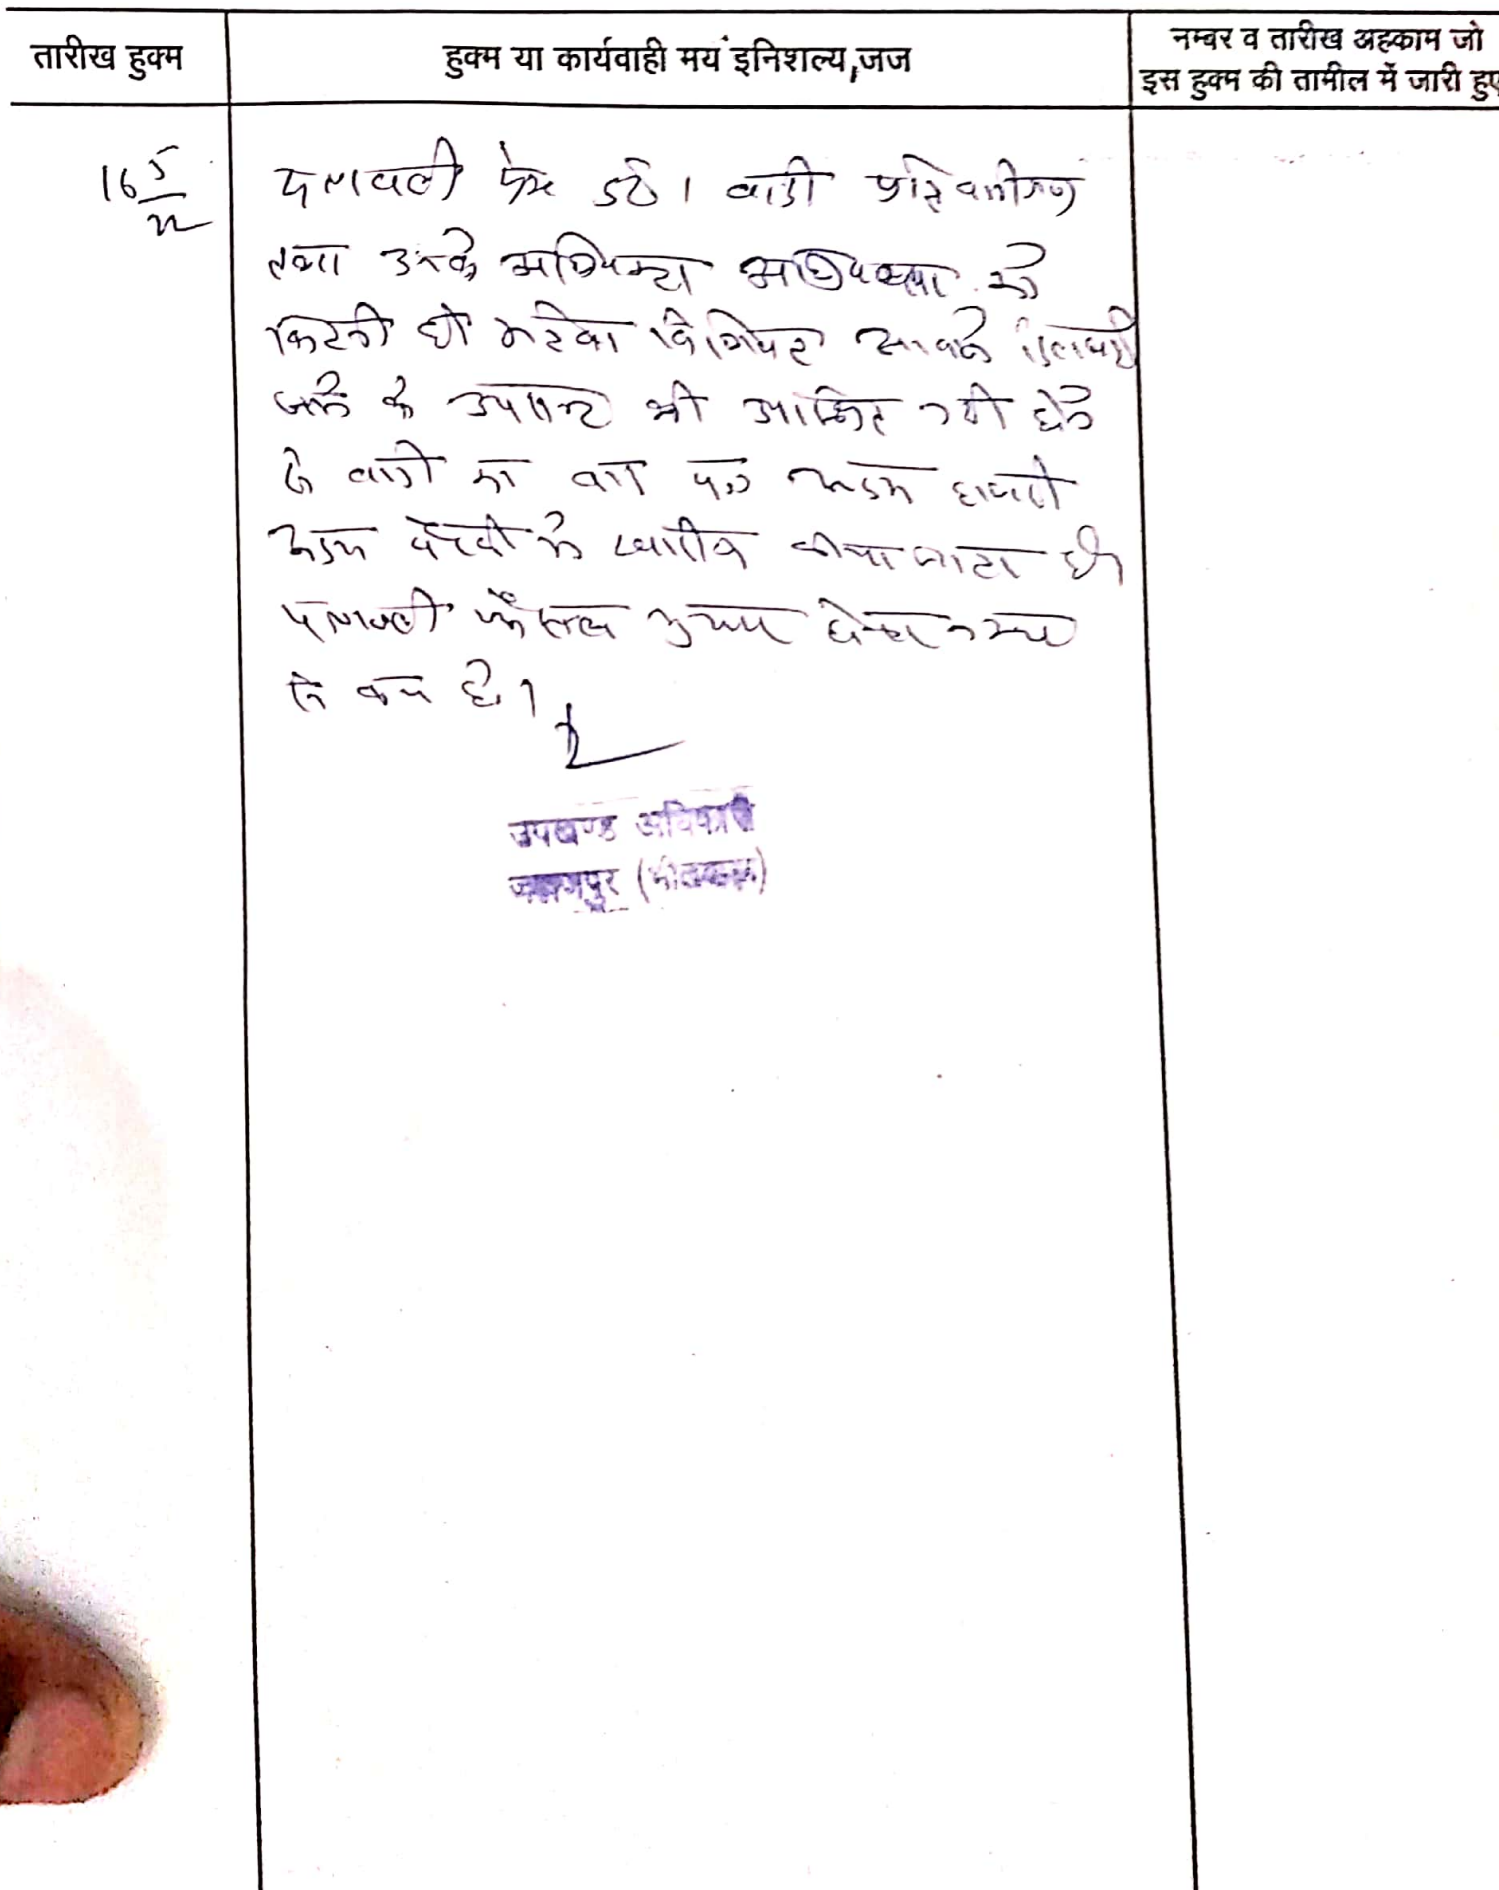 तारीख हुक्म
हुक्म या कार्यवाही मय इनिशल्य, जज
नम्बर व तारीख अहकाम जो
इस हुक्म की तामील में जारी हुए
16 5
पत्रावली पेश हुई। वादी प्रतिवादीगण
तथा उनके अधिवक्ता को
कितनी ही मरतबा आवाजें दिलवाई
जाने के उपरान्त भी उपस्थित नहीं होने
से वादी का वाद पत्र अदम हाजरी
अदम पैरवी में खारीज कीया जाता है।
पत्रावली फैसल शुमार होकर नम्बर
से कम हो।
उपखण्ड अधिकारी